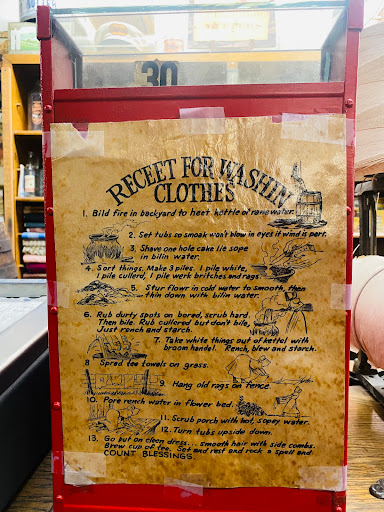 30
RECEET FOR WASHIN
CLOTHES
1. Bild fire in backyard to heet kettle of rane water.
2. Set tubs so smoak won't blow in eyes if wind is pert.
3. Shave one hole cake lie sope
in bilin water.
4. Sort things. Make 3 piles. 1 pile white,
1 pile cullord, 1 pile werk britches and rags.
5. Stur flowr in cold water to smooth, then
thin down with bilin water.
6. Rub durty spots on bored, scrub hard.
Then bile. Rub cullored but don't bile,
Just rench and starch.
7. Take white things out of kettel with
broom handel. Rench, blew and starch.
8. Spred tee towels on grass.
9. Hang old rags on fence.
10. Pore rench water in flower bed.
11. Scrub porch with hot, sopey water.
12. Turn tubs upside down.
13. Go put on cleen dress... smooth hair with side combs.
Brew cup of tee. Set and rest and rock a spell and
COUNT BLESSINGS.